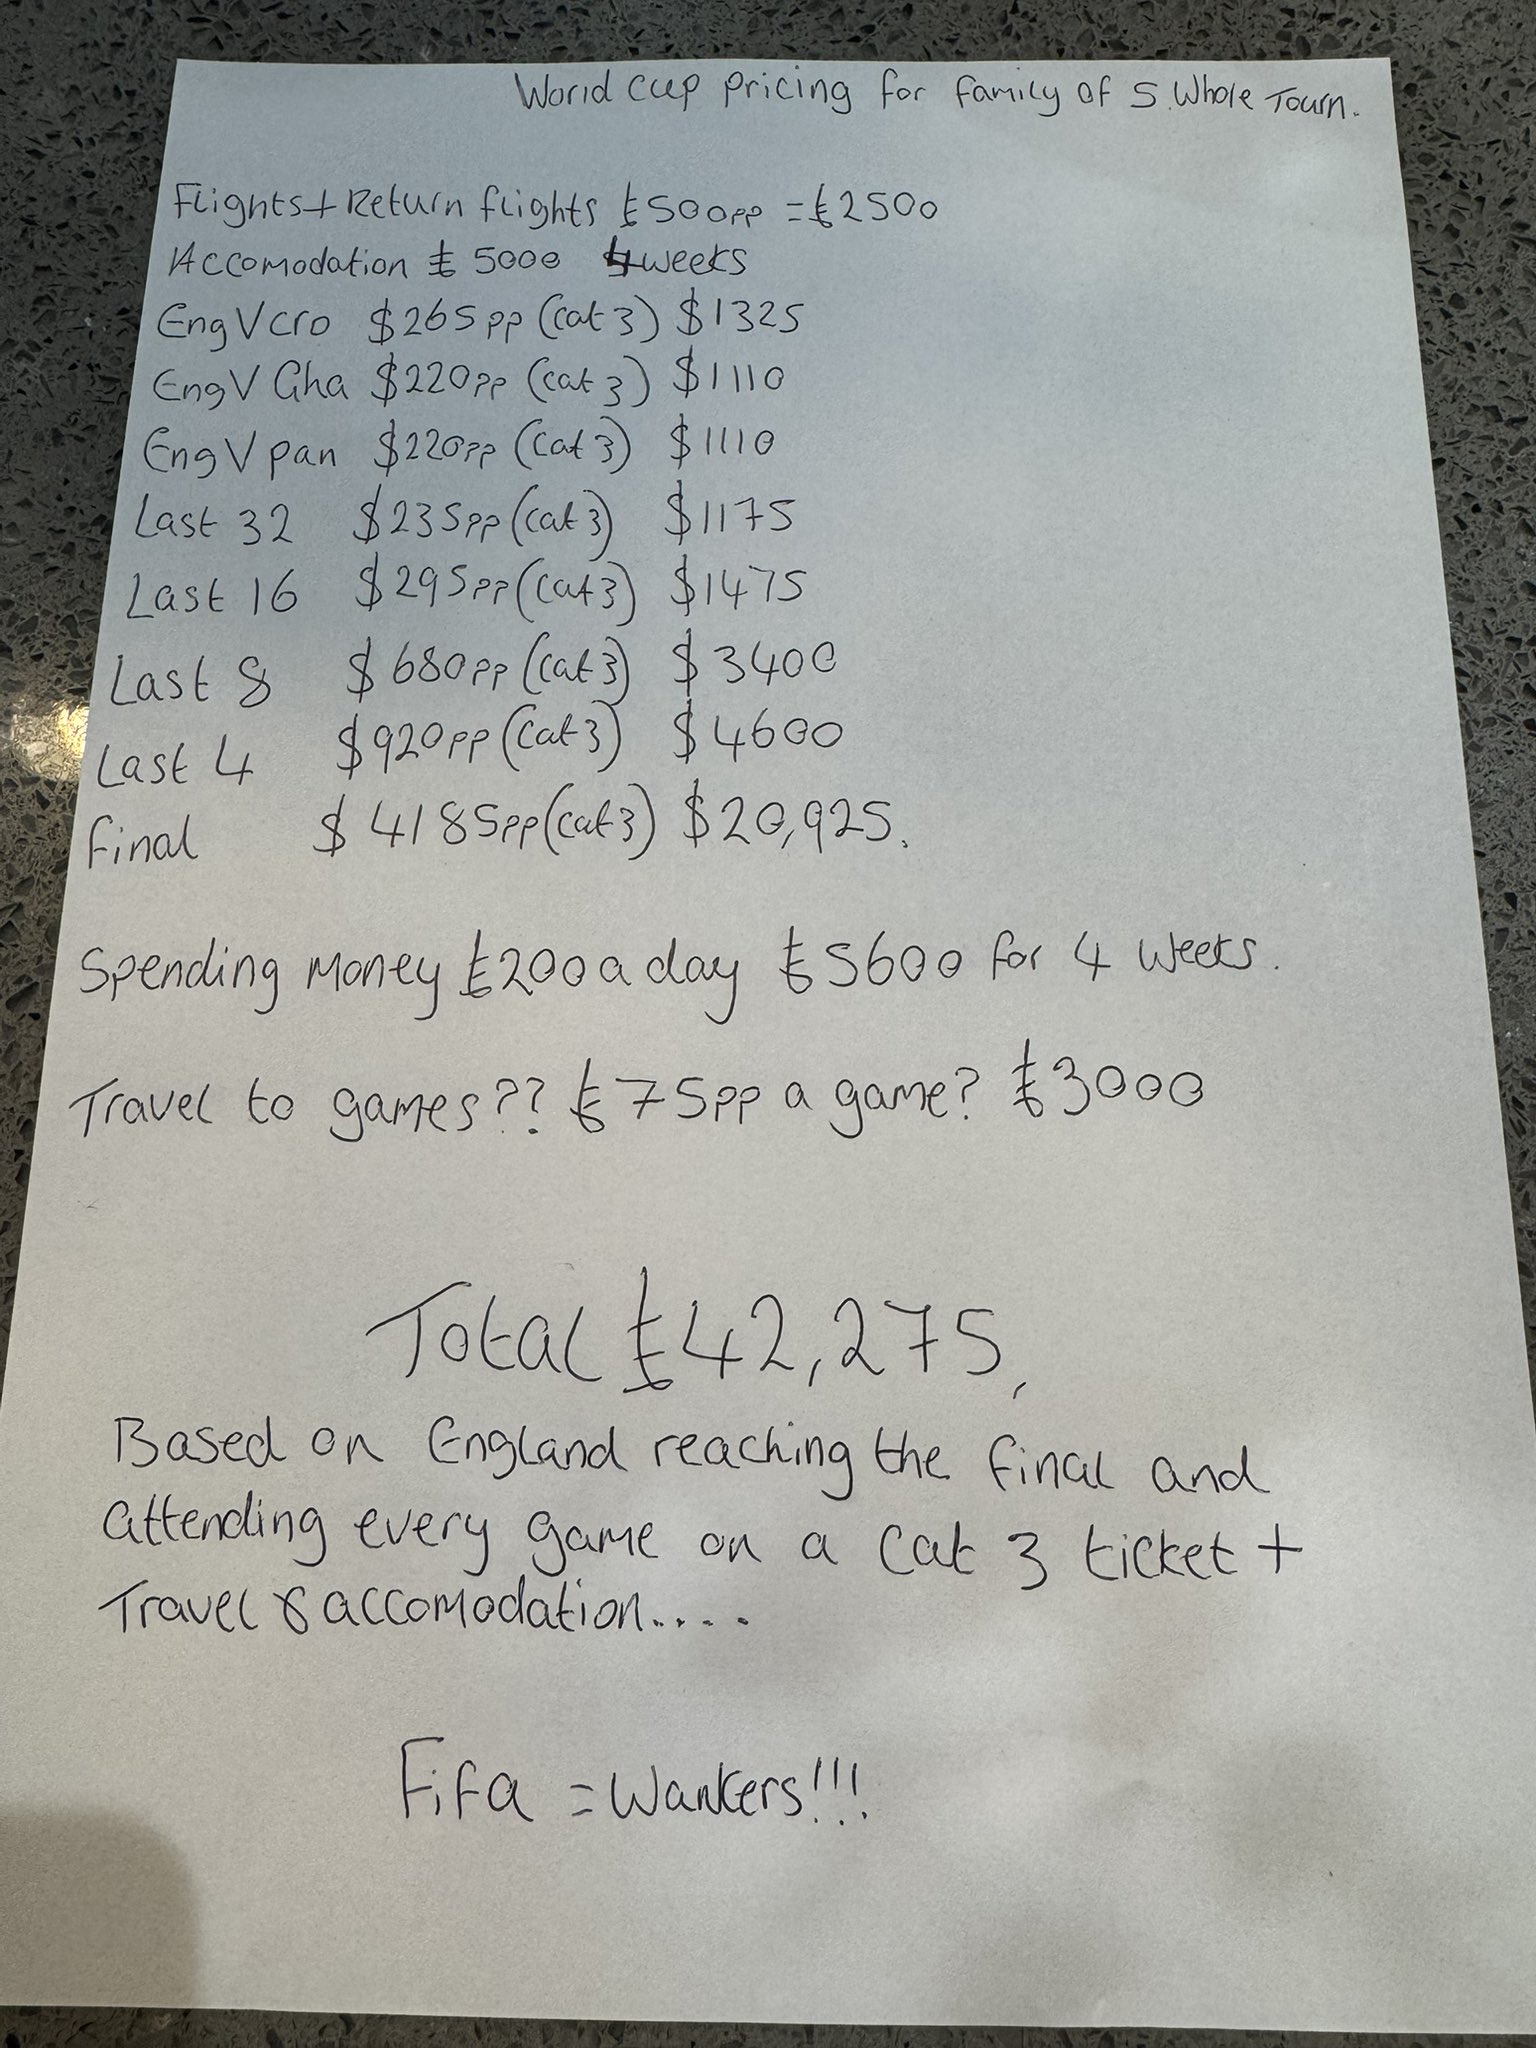 World cup pricing for family of 5. Whole Tourn.
Flights + Return flights £500pp = £2500
Accomodation £5000 4 weeks
Eng V Cro $265pp (cat 3) $1325
Eng V Gha $220pp (cat 3) $1110
Eng V pan $220pp (cat 3) $1110
Last 32 $235pp (cat 3) $1175
Last 16 $295pp (cat 3) $1475
Last 8 $680pp (cat 3) $3400
Last 4 $920pp (cat 3) $4600
final $4185pp (cat 3) $20,925.
Spending money £200 a day £5600 for 4 weeks.
Travel to games?? £75pp a game? £3000
Total £42,275,
Based on England reaching the final and
attending every game on a cat 3 ticket +
Travel & accomodation....
Fifa = Wankers!!!